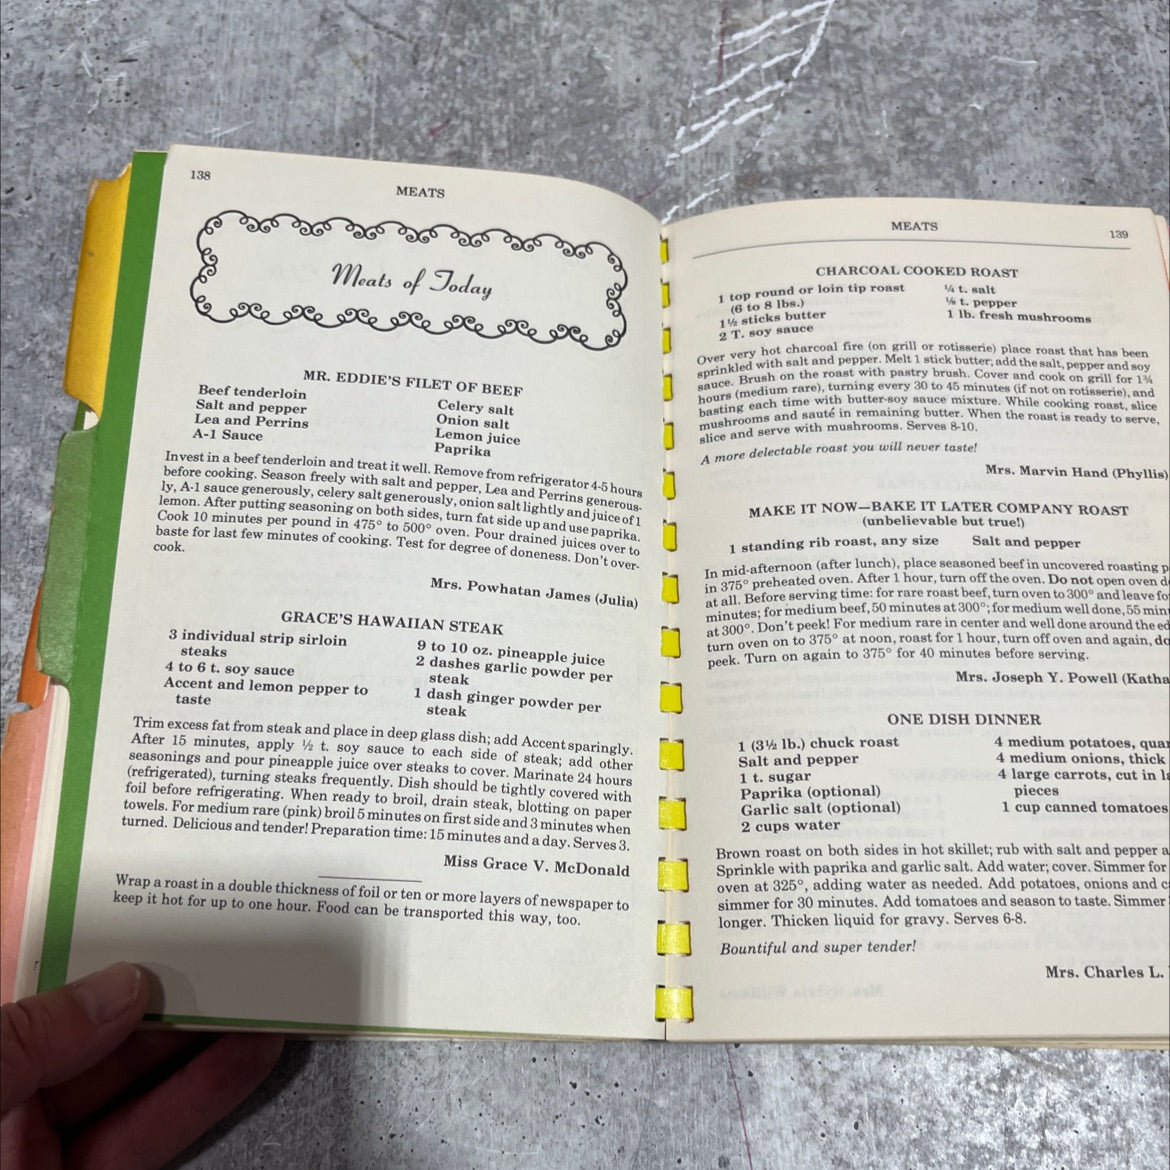 138
MEATS
Meats of Today
MR. EDDIE'S FILET OF BEEF
Beef tenderloin
Salt and pepper
Lea and Perrins
A-1 Sauce
Celery salt
Onion salt
Lemon juice
Paprika
Invest in a beef tenderloin and treat it well. Remove from refrigerator 4-5 hours
before cooking. Season freely with salt and pepper, Lea and Perrins generous-
ly, A-1 sauce generously, celery salt generously, onion salt lightly and juice of 1
lemon. After putting seasoning on both sides, turn fat side up and use paprika.
Cook 10 minutes per pound in 475° to 500° oven. Pour drained juices over to
baste for last few minutes of cooking. Test for degree of doneness. Don't over-
cook.
Mrs. Powhatan James (Julia)
GRACE'S HAWAIIAN STEAK
3 individual strip sirloin
steaks
4 to 6 t. soy sauce
Accent and lemon pepper to
taste
9 to 10 oz. pineapple juice
2 dashes garlic powder per
steak
1 dash ginger powder per
steak
Trim excess fat from steak and place in deep glass dish; add Accent sparingly.
After 15 minutes, apply ½ t. soy sauce to each side of steak; add other
seasonings and pour pineapple juice over steaks to cover. Marinate 24 hours
(refrigerated), turning steaks frequently. Dish should be tightly covered with
foil before refrigerating. When ready to broil, drain steak, blotting on paper
towels. For medium rare (pink) broil 5 minutes on first side and 3 minutes when
turned. Delicious and tender! Preparation time: 15 minutes and a day. Serves 3.
Miss Grace V. McDonald
Wrap a roast in a double thickness of foil or ten or more layers of newspaper to
keep it hot for up to one hour. Food can be transported this way, too.
MEATS
139
CHARCOAL COOKED ROAST
1 top round or loin tip roast
(6 to 8 lbs.)
1½ sticks butter
2 T. soy sauce
¼ t. salt
⅛ t. pepper
1 lb. fresh mushrooms
Over very hot charcoal fire (on grill or rotisserie) place roast that has been
sprinkled with salt and pepper. Melt 1 stick butter; add the salt, pepper and soy
sauce. Brush on the roast with pastry brush. Cover and cook on grill for 1¾
hours (medium rare), turning every 30 to 45 minutes (if not on rotisserie), and
basting each time with butter-soy sauce mixture. While cooking roast, slice
mushrooms and sauté in remaining butter. When the roast is ready to serve,
slice and serve with mushrooms. Serves 8-10.
A more delectable roast you will never taste!
Mrs. Marvin Hand (Phyllis)
MAKE IT NOW—BAKE IT LATER COMPANY ROAST
(unbelievable but true!)
1 standing rib roast, any size
Salt and pepper
In mid-afternoon (after lunch), place seasoned beef in uncovered roasting p
in 375° preheated oven. After 1 hour, turn off the oven. Do not open oven d
at all. Before serving time: for rare roast beef, turn oven to 300° and leave fo
minutes; for medium beef, 50 minutes at 300°; for medium well done, 55 min
at 300°. Don't peek! For medium rare in center and well done around the ed
turn oven on to 375° at noon, roast for 1 hour, turn off oven and again, do
peek. Turn on again to 375° for 40 minutes before serving.
Mrs. Joseph Y. Powell (Katha
ONE DISH DINNER
1 (3½ lb.) chuck roast
Salt and pepper
1 t. sugar
Paprika (optional)
Garlic salt (optional)
2 cups water
4 medium potatoes, quar
4 medium onions, thick
4 large carrots, cut in la
pieces
1 cup canned tomatoes
Brown roast on both sides in hot skillet; rub with salt and pepper a
Sprinkle with paprika and garlic salt. Add water; cover. Simmer for
oven at 325°, adding water as needed. Add potatoes, onions and c
simmer for 30 minutes. Add tomatoes and season to taste. Simmer
longer. Thicken liquid for gravy. Serves 6-8.
Bountiful and super tender!
Mrs. Charles L.